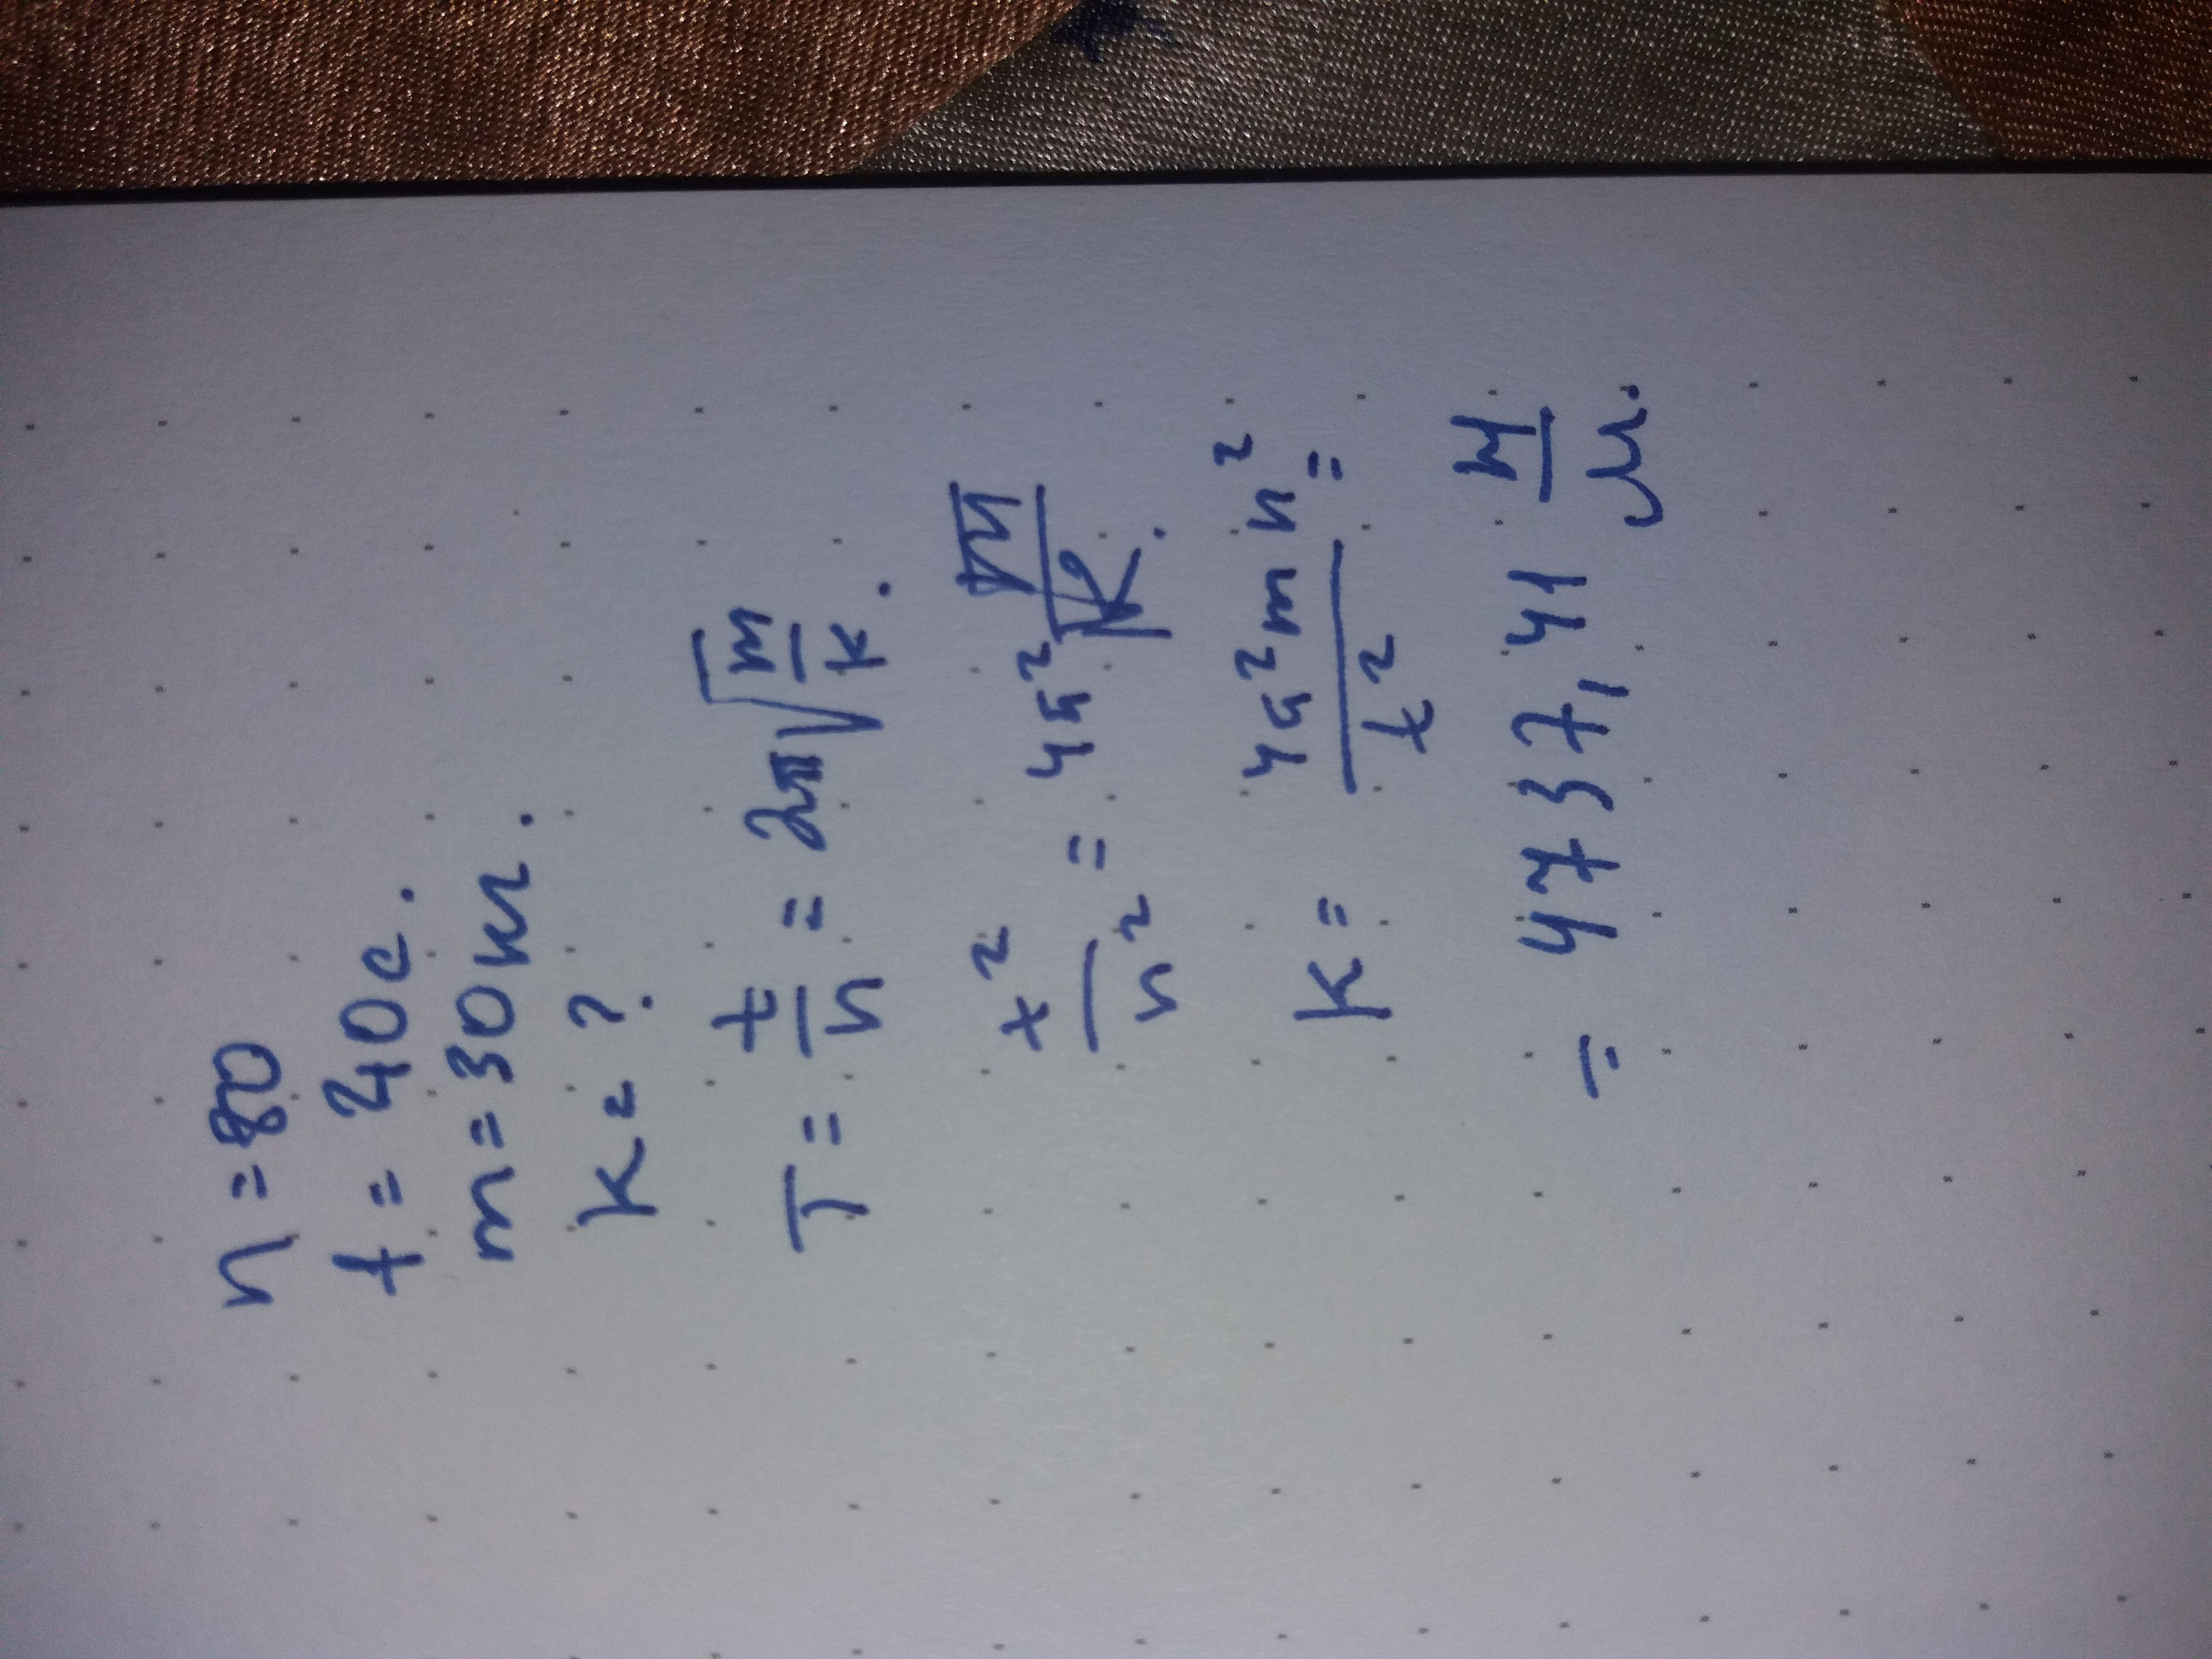 n = 80
t = 40 с.
m = 30 кг.
k = ?
T = t/n = 2π√(m/k).
t²/n² = 4π² m/k.
k = 4π²mn²/t² =
= 4737,41 Н/м.